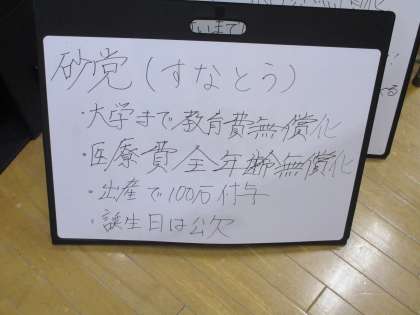 砂党(すなとう)
・大学まで教育費無償化
・医療費全年齢無償化
・出産で100万付与
・誕生日は公欠